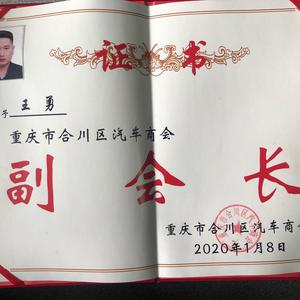 证书
号 王勇
重庆市合川区汽车商会
副会长
重庆市合川区汽车商
2020年1月8日